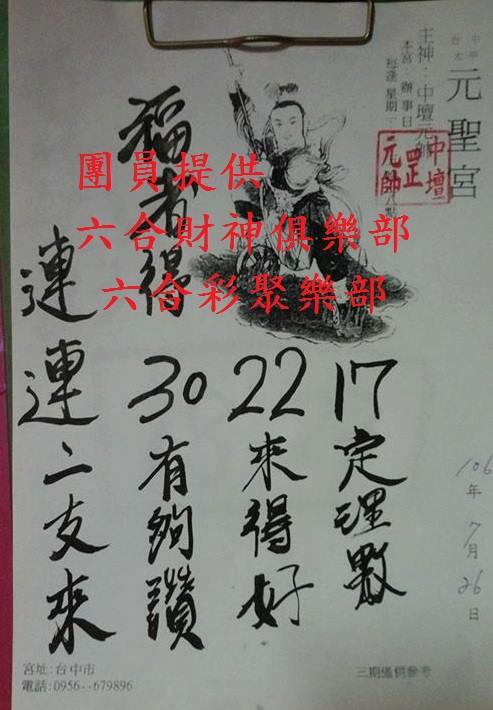 台中 中平
元聖宮
主神：中壇元帥
本宮：辦事日
每逢星期
中壇
元帥
團員提供
六合財神俱樂部
六合彩聚樂部
17定理數
22來得好
30有夠讚
福者得
連連二支來
106年7月26日
宮址：台中市
電話：0956--679896
三期僅供參考